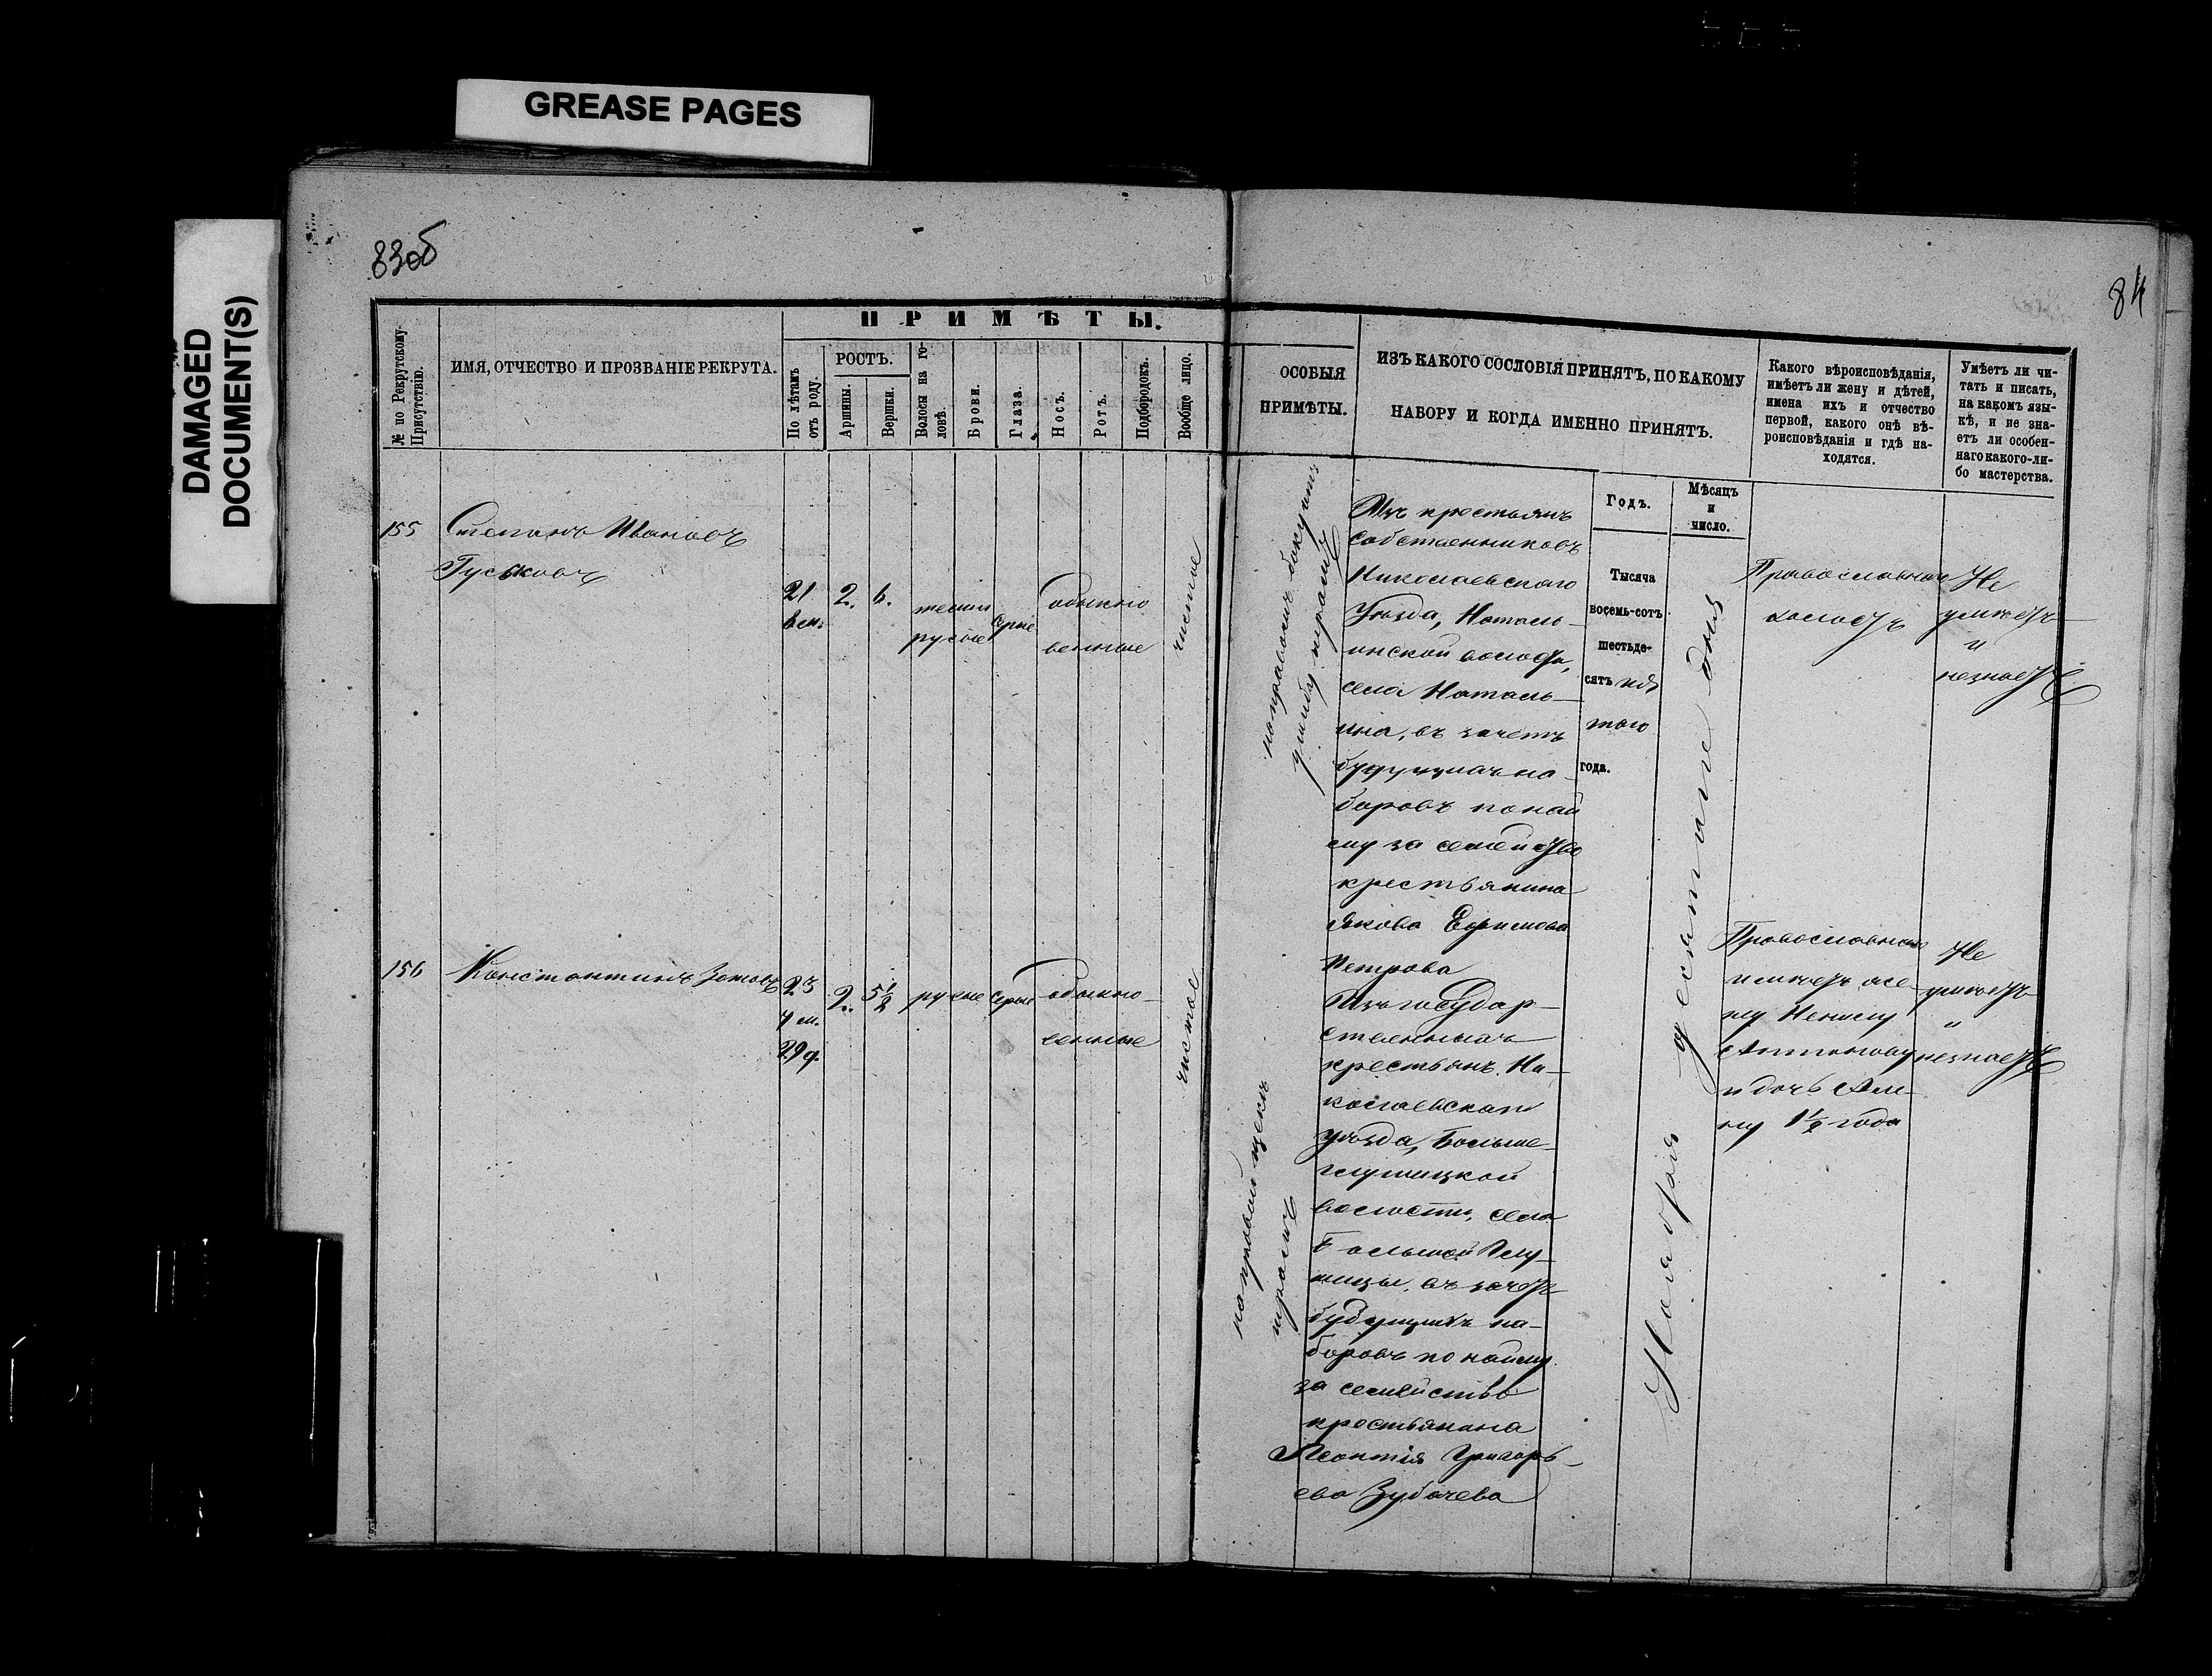 GREASE PAGES
DAMAGED
DOCUMENT(S)
83об
84
№ по Рекрутскому
Присутствію.
ИМЯ, ОТЧЕСТВО И ПРОЗВАНІЕ РЕКРУТА.
ПРИМѢТЫ.
По лѣтамъ
отъ роду.
РОСТЪ.
Аршины.
Вершки.
Волосы на го-
ловѣ.
Брови.
Глаза.
Носъ.
Ротъ.
Подбородокъ.
Вообще лицо.
ОСОБЫЯ
ПРИМѢТЫ.
ИЗЪ КАКОГО СОСЛОВІЯ ПРИНЯТЪ, ПО КАКОМУ
НАБОРУ И КОГДА ИМЕННО ПРИНЯТЪ.
Годъ.
Мѣсяцъ
и
число.
Какого вѣроисповѣданія,
имѣетъ ли жену и дѣтей,
имена ихъ и отчество
первой, какого онѣ вѣ-
роисповѣданія и гдѣ на-
ходятся.
Умѣетъ ли чи-
тать и писать,
на какомъ язы-
кѣ, и не зна-
етъ ли особен-
наго какого-ли-
бо мастерства.
155
Степанъ Ивановъ
Гуськовъ
21
2.
6.
темно
русые
серые
обыкно
венные
чистое
на правомъ боку отъ
ушибу шрамъ
Изъ крестьянъ
собственниковъ
Николаевского
Уѣзда, Наталь-
инской волости,
села Наталь-
ина, въ зачетъ
будущихъ на-
боровъ по най
му за семейство
крестьянина
Якова Ефимова
Петрова
Тысяча
восемь-сотъ
шестьде-
сятъ пя
таго
года.
Ноября десятаго дня
Православнаго
холостъ
Не
умѣетъ
и
незнаетъ
156
Константинъ Зотовъ
23
7 м.
29 д.
2.
5 1/2
русые
серые
обыкно-
венные
чистое
на правой щекѣ
шрамъ
Изъ государ-
ственныхъ
крестьянъ Ни-
колаевскаго
уѣзда, Больше-
глушицкой
волости, села
Большой Глу-
шицы, въ зачетъ
будущихъ на-
боровъ по найму
за семейство
крестьянина
Леонтія Григорь-
ева Зубачева
Православнаго
имѣетъ же-
ну Ненилу
Антонову
и дочь Ан-
ну 1 1/2 года
Не
умѣетъ
и
незнаетъ